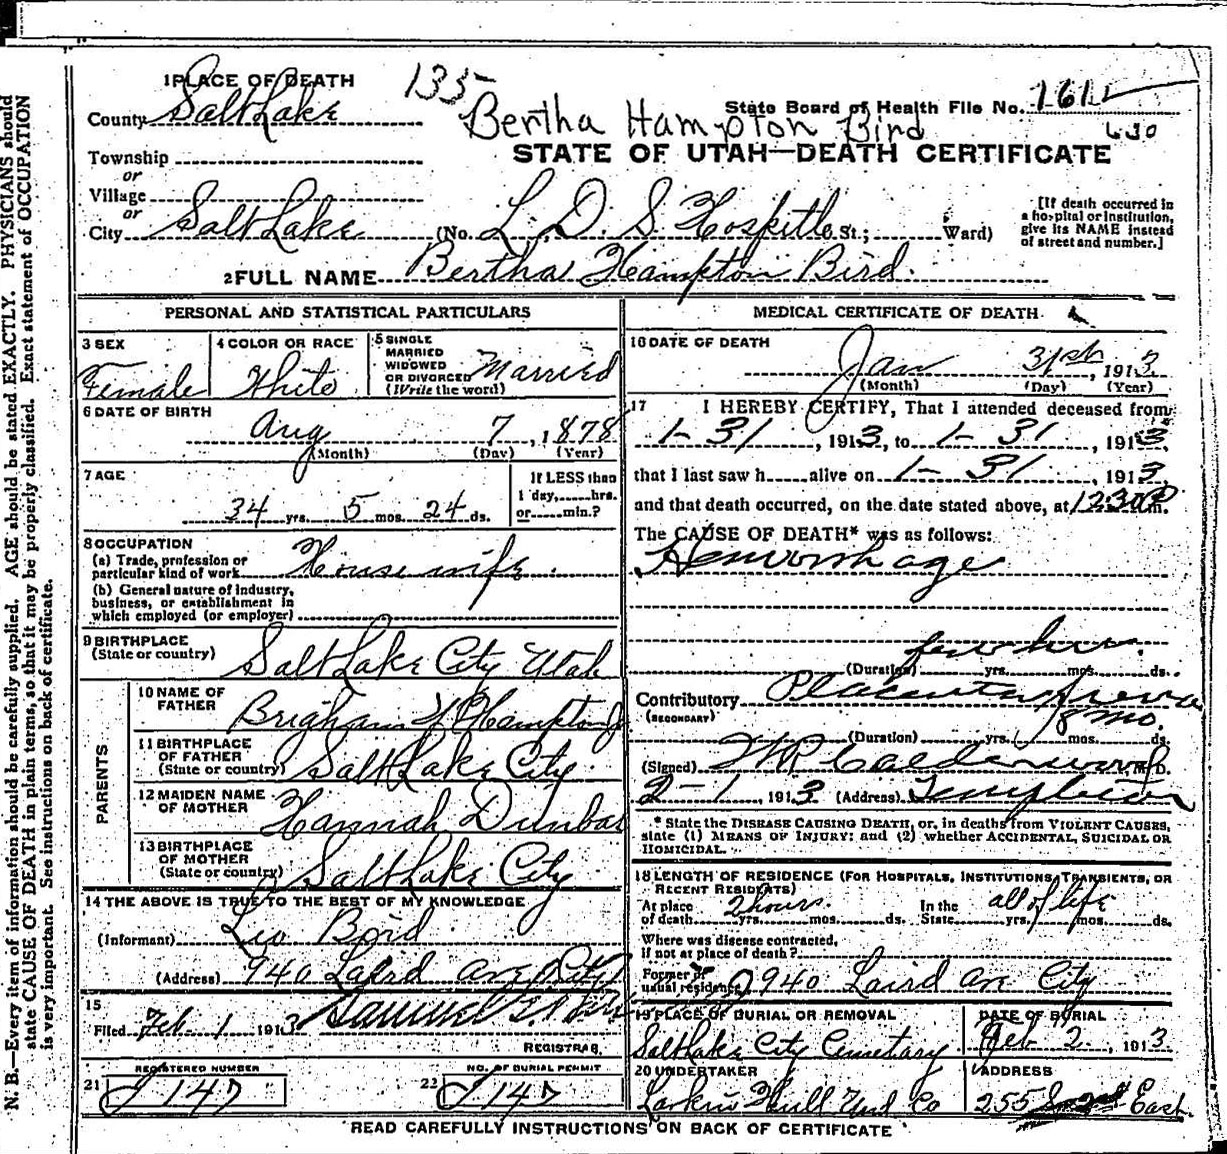 1 PLACE OF DEATH
135
State Board of Health File No. 161
County Salt Lake
Bertha Hampton Bird
STATE OF UTAH—DEATH CERTIFICATE
Township
or
Village
or
City Salt Lake (No. L. D. S. Hospital St.; Ward)
[If death occurred in
a hospital or institution,
give its NAME instead
of street and number.]
2 FULL NAME Bertha Hampton Bird.
PERSONAL AND STATISTICAL PARTICULARS
3 SEX
Female
4 COLOR OR RACE
White
5 SINGLE
MARRIED
WIDOWED
OR DIVORCED
(Write the word)
Married
6 DATE OF BIRTH
Aug 7, 1878
(Month) (Day) (Year)
7 AGE
34 yrs. 5 mos. 24 ds.
If LESS than
1 day, hrs.
or min.?
8 OCCUPATION
(a) Trade, profession or
particular kind of work Housewife.
(b) General nature of industry,
business, or establishment in
which employed (or employer)
9 BIRTHPLACE
(State or country) Salt Lake City Utah
PARENTS
10 NAME OF
FATHER Brigham Y Hampton Jr
11 BIRTHPLACE
OF FATHER
(State or country) Salt Lake City.
12 MAIDEN NAME
OF MOTHER Hannah Dunbar
13 BIRTHPLACE
OF MOTHER
(State or country) Salt Lake City
14 THE ABOVE IS TRUE TO THE BEST OF MY KNOWLEDGE
(Informant) Leo Bird
(Address) 940 Laird ave City
15
Filed Feb. 1 1913 Samuel
REGISTRAR.
REGISTERED NUMBER
21 J 147
NO. OF BURIAL PERMIT
22 J 147
MEDICAL CERTIFICATE OF DEATH
16 DATE OF DEATH
Jan 31st, 1913.
(Month) (Day) (Year)
17 I HEREBY CERTIFY, That I attended deceased from
1-31, 1913, to 1-31, 1913,
that I last saw h alive on 1-31, 1913
and that death occurred, on the date stated above, at 1230 P m.
The CAUSE OF DEATH* was as follows:
Hemorrhage
few hrs.
(Duration) yrs. mos. ds.
Contributory Placenta previa
(SECONDARY)
8 mo.
(Duration) yrs. mos. ds.
(Signed) Calderwood M.D.
2-1, 1913 (Address) Templeton
* State the DISEASE CAUSING DEATH, or, in deaths from VIOLENT CAUSES,
state (1) MEANS OF INJURY; and (2) whether ACCIDENTAL, SUICIDAL OR
HOMICIDAL.
18 LENGTH OF RESIDENCE (FOR HOSPITALS, INSTITUTIONS, TRANSIENTS, OR
RECENT RESIDENTS)
At place
of death 2 hours. yrs. mos. ds.
In the
State all of life yrs. mos. ds.
Where was disease contracted,
if not at place of death?
Former or
usual residence 940 Laird ave City
19 PLACE OF BURIAL OR REMOVAL
Salt Lake City Cemetary
DATE OF BURIAL
Feb 2, 1913.
20 UNDERTAKER
Larkin Hull Und Co
ADDRESS
255 East
READ CAREFULLY INSTRUCTIONS ON BACK OF CERTIFICATE
N. B.—Every item of information should be carefully supplied. AGE should be stated EXACTLY. PHYSICIANS should
state CAUSE OF DEATH in plain terms, so that it may be properly classified. Exact statement of OCCUPATION
is very important. See instructions on back of certificate.